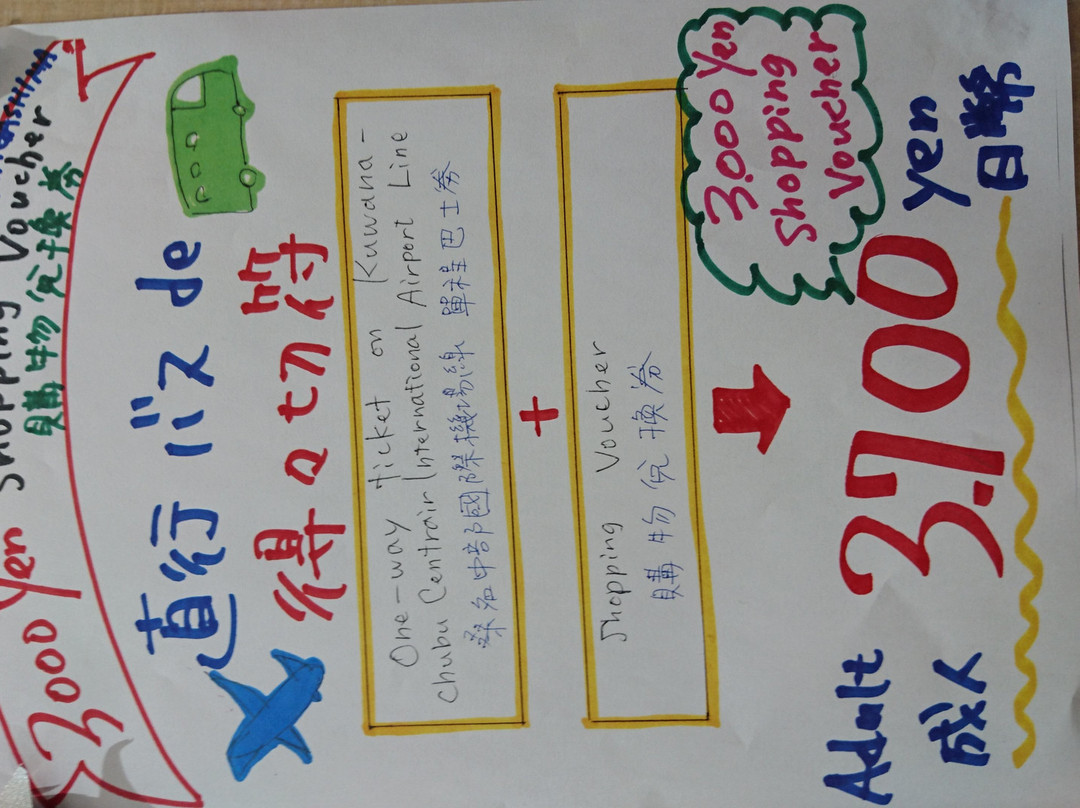 3000 Yen Shopping Voucher
購物兌換券
直行バス de
得 切符
One-way ticket on Kuwana-
Chubu Centrair International Airport Line
桑名中部國際機場線 單程巴士券
+
Shopping Voucher
購物兌換券
3.000 Yen
Shopping
Voucher
Adalt 3.700 yen
成人 日幣